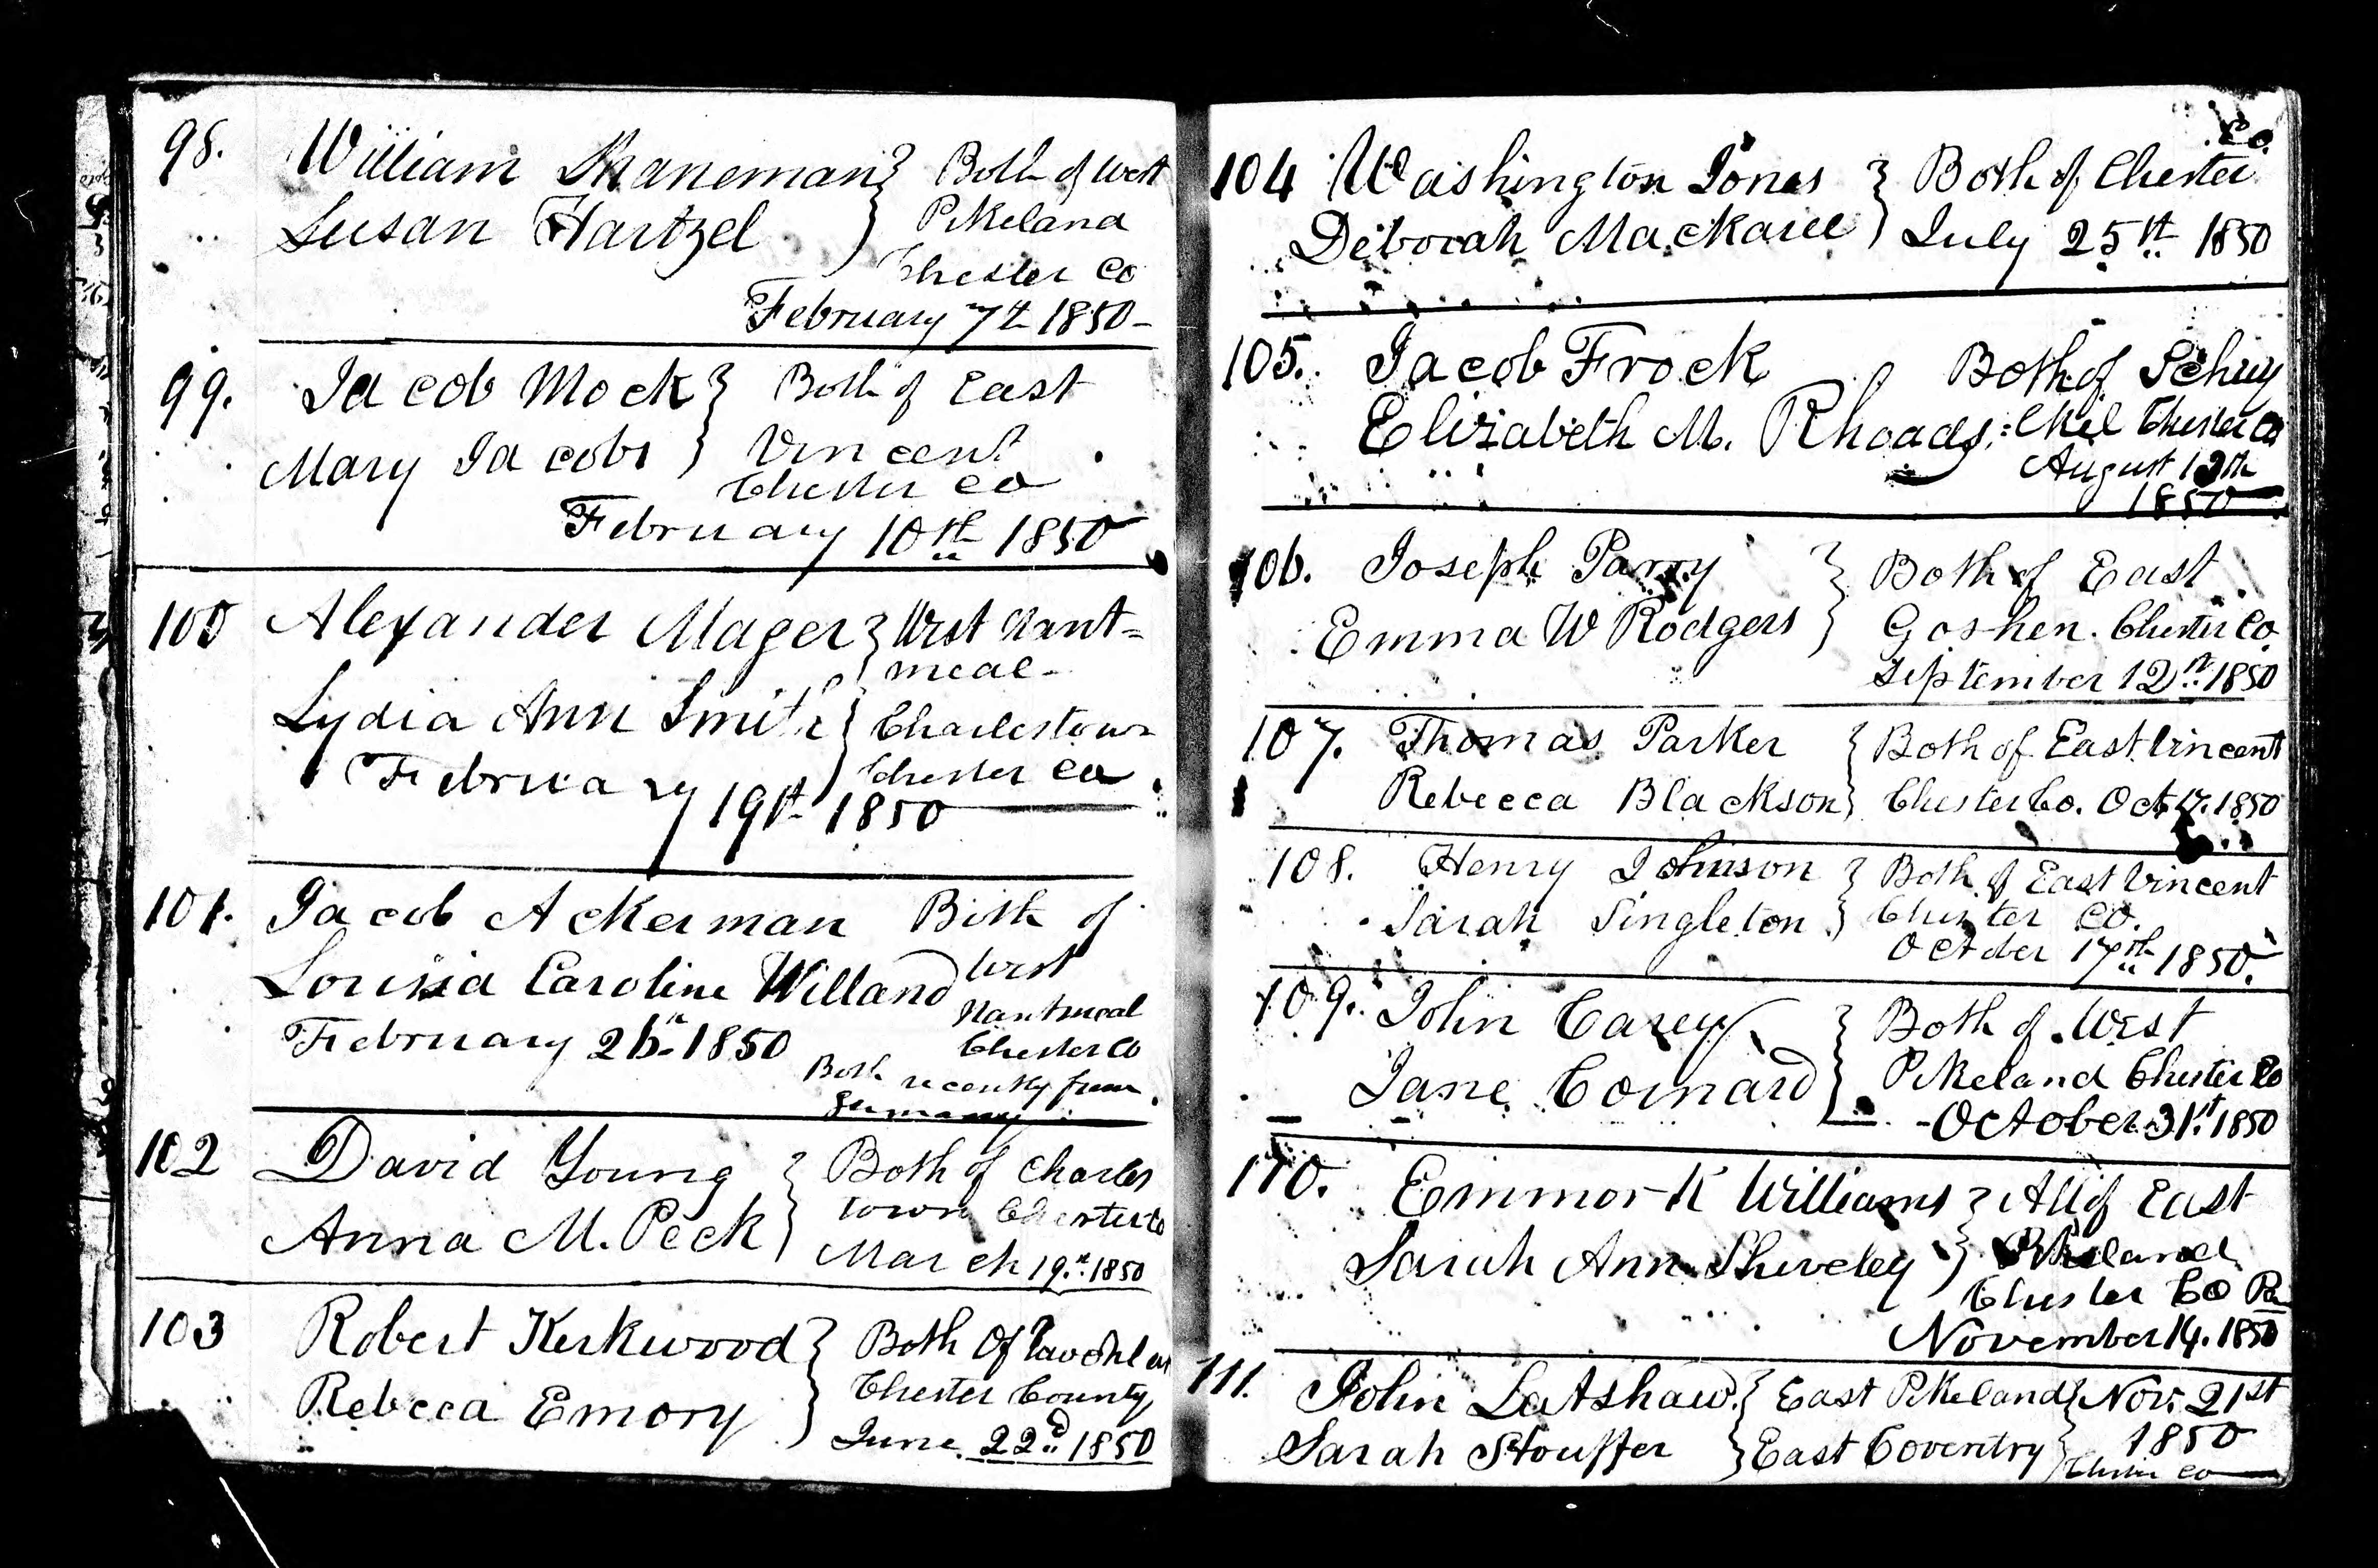 98. William Shaneman } Both of West
Susan Hartzel } Pikeland
Chester Co
February 7th 1850-
99. Jacob Mock } Both of East
Mary Jacobs } Vincent
Chester Co
February 10th 1850
100 Alexander Mager } West Nant=
meal-
Lydia Ann Smith } Charlestown
Chester Co
February 19th 1850
101. Jacob Ackerman Both of
Louisia Caroline Willand West
Nantmeal
February 26th 1850 Chester Co
Both recently from
Germany
102 David Young } Both of Charles
town Chester Co
Anna M. Peck } March 19th 1850
103 Robert Kirkwood } Both Of
Chester County
Rebecca Emory } June 22d 1850
Co.
104 Washington Jones } Both of Chester
Deborah } July 25th 1850
105. Jacob Frock Both of Schuy
Elizabeth M. Rhoads :lkil Chester Co
August
1850
106. Joseph Parry } Both of East
Emma W Rodgers } Goshen. Chester Co
September 12th 1850
107. Thomas Parker } Both of East Vincent
Rebecca Blackson } Chester Co. Oct 17. 1850
108. Henry Johnson } Both of East Vincent
Sarah Singleton } Chester Co.
October 17th 1850.
109. John Carey } Both of West
Jane Coinard } Pikeland Chester Co
-October 31st 1850
110. Emmor K Williams } All of East
Sarah Ann Shiveley } Pikeland
Chester Co Pa
November 14. 1850
111. John Latshaw. } East Pikeland } Nov. 21st
Sarah Stouffer } East Coventry } 1850
Chester Co